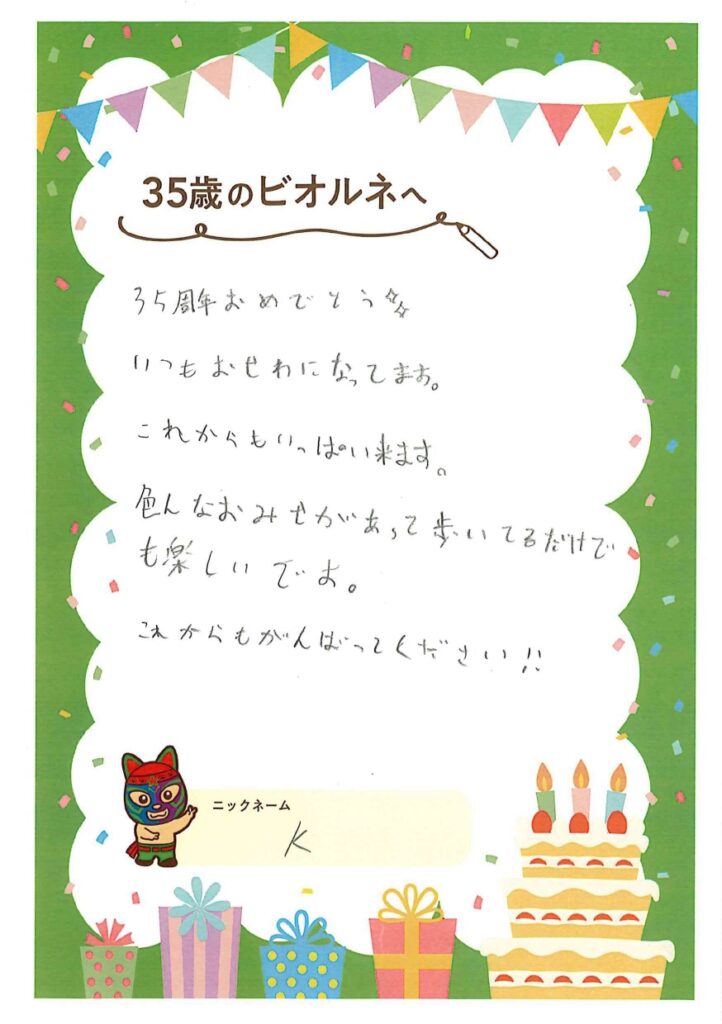 35歳のビオルネへ
35周年おめでとう☆☆
いつもおせわになってます。
これからもいっぱい来ます。
色んなおみせがあって歩いてるだけで
も楽しいです。
これからもがんばってください!!
ニックネーム
K